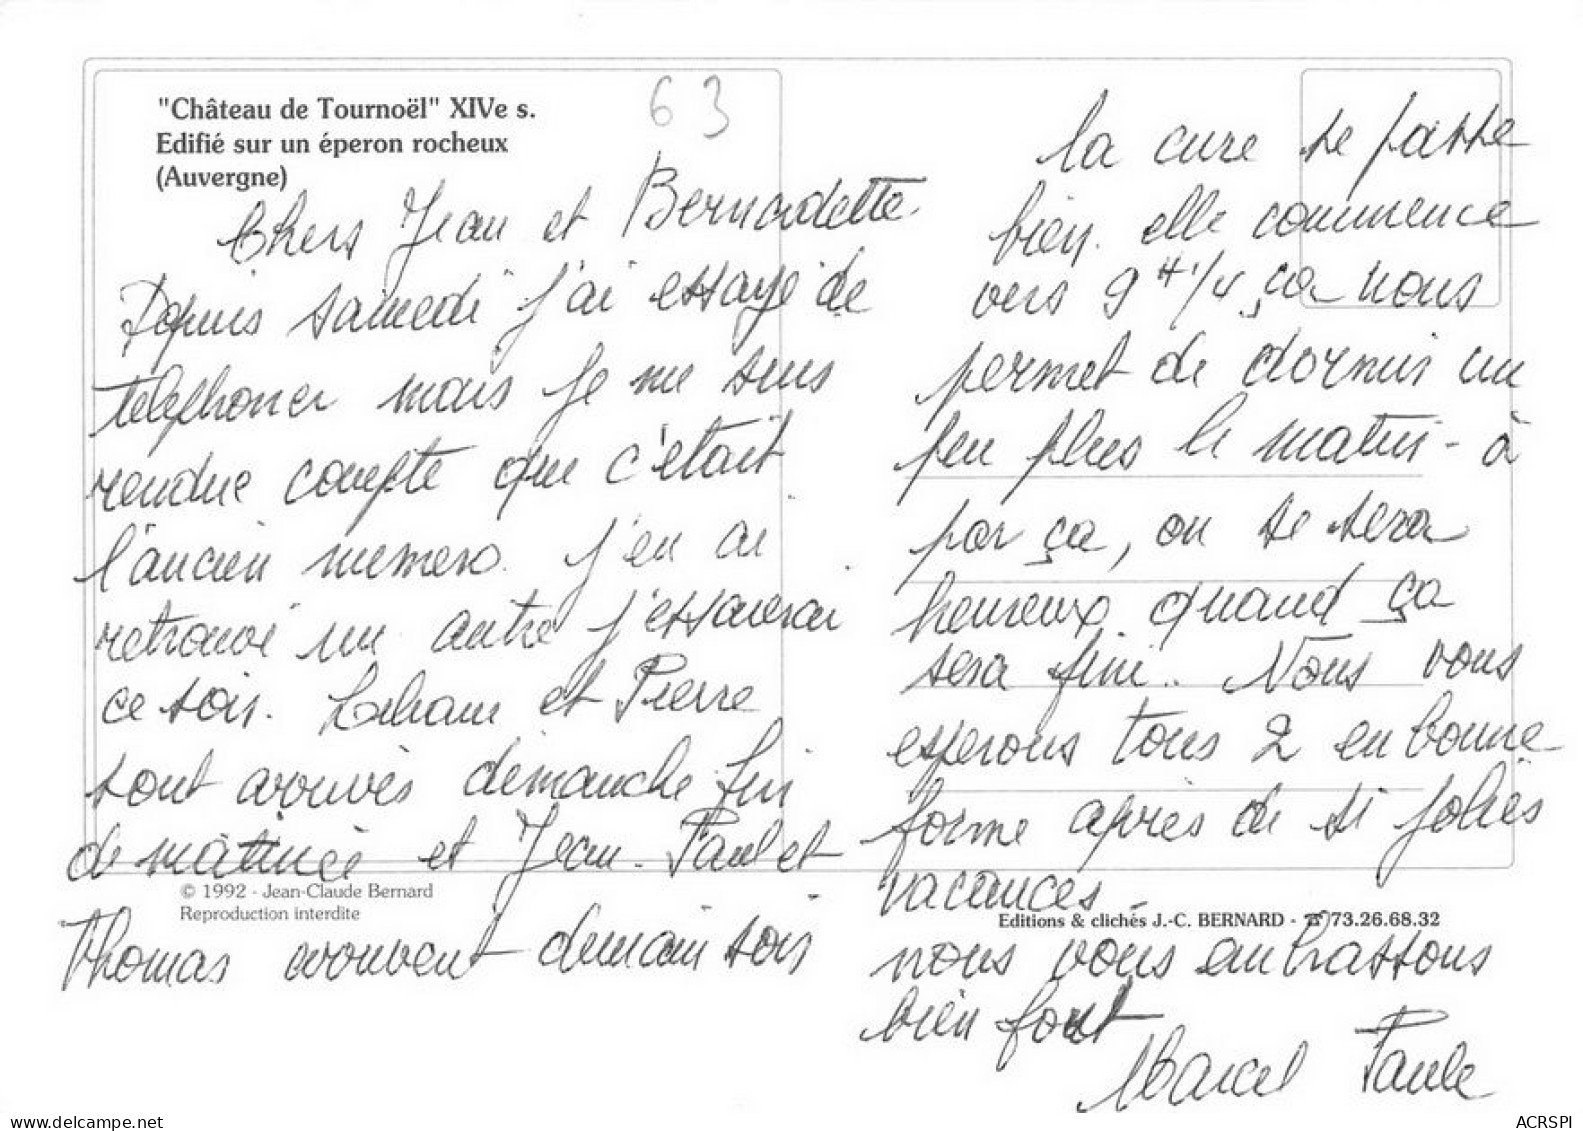 "Château de Tournoël" XIVe s.
Edifié sur un éperon rocheux
(Auvergne)
63
Chers Jean et Bernadette.
Depuis samedi j'ai essayé de
telephoner mais je me suis
rendue compte que c'était
l'ancien numero. j'en ai
retrouvé un autre j'essaierai
ce soir. et Pierre
sont arrivés dimanche fin
de matinée et Jean-Paul et
Thomas arrivent demain soir
la cure se passe
bien. elle commence
vers 9 H 1/4 ça nous
permet de dormir un
peu plus le matin - à
par ça, on se sera
heureux quand ça
sera fini.. Nous vous
esperons tous 2 en bonne
forme après de si jolies
vacances -
nous vous embrassons
bien fort
Marcel Paule
© 1992 - Jean-Claude Bernard
Reproduction interdite
Editions & clichés J.-C. BERNARD - ☎ 73.26.68.32
ACRSPI